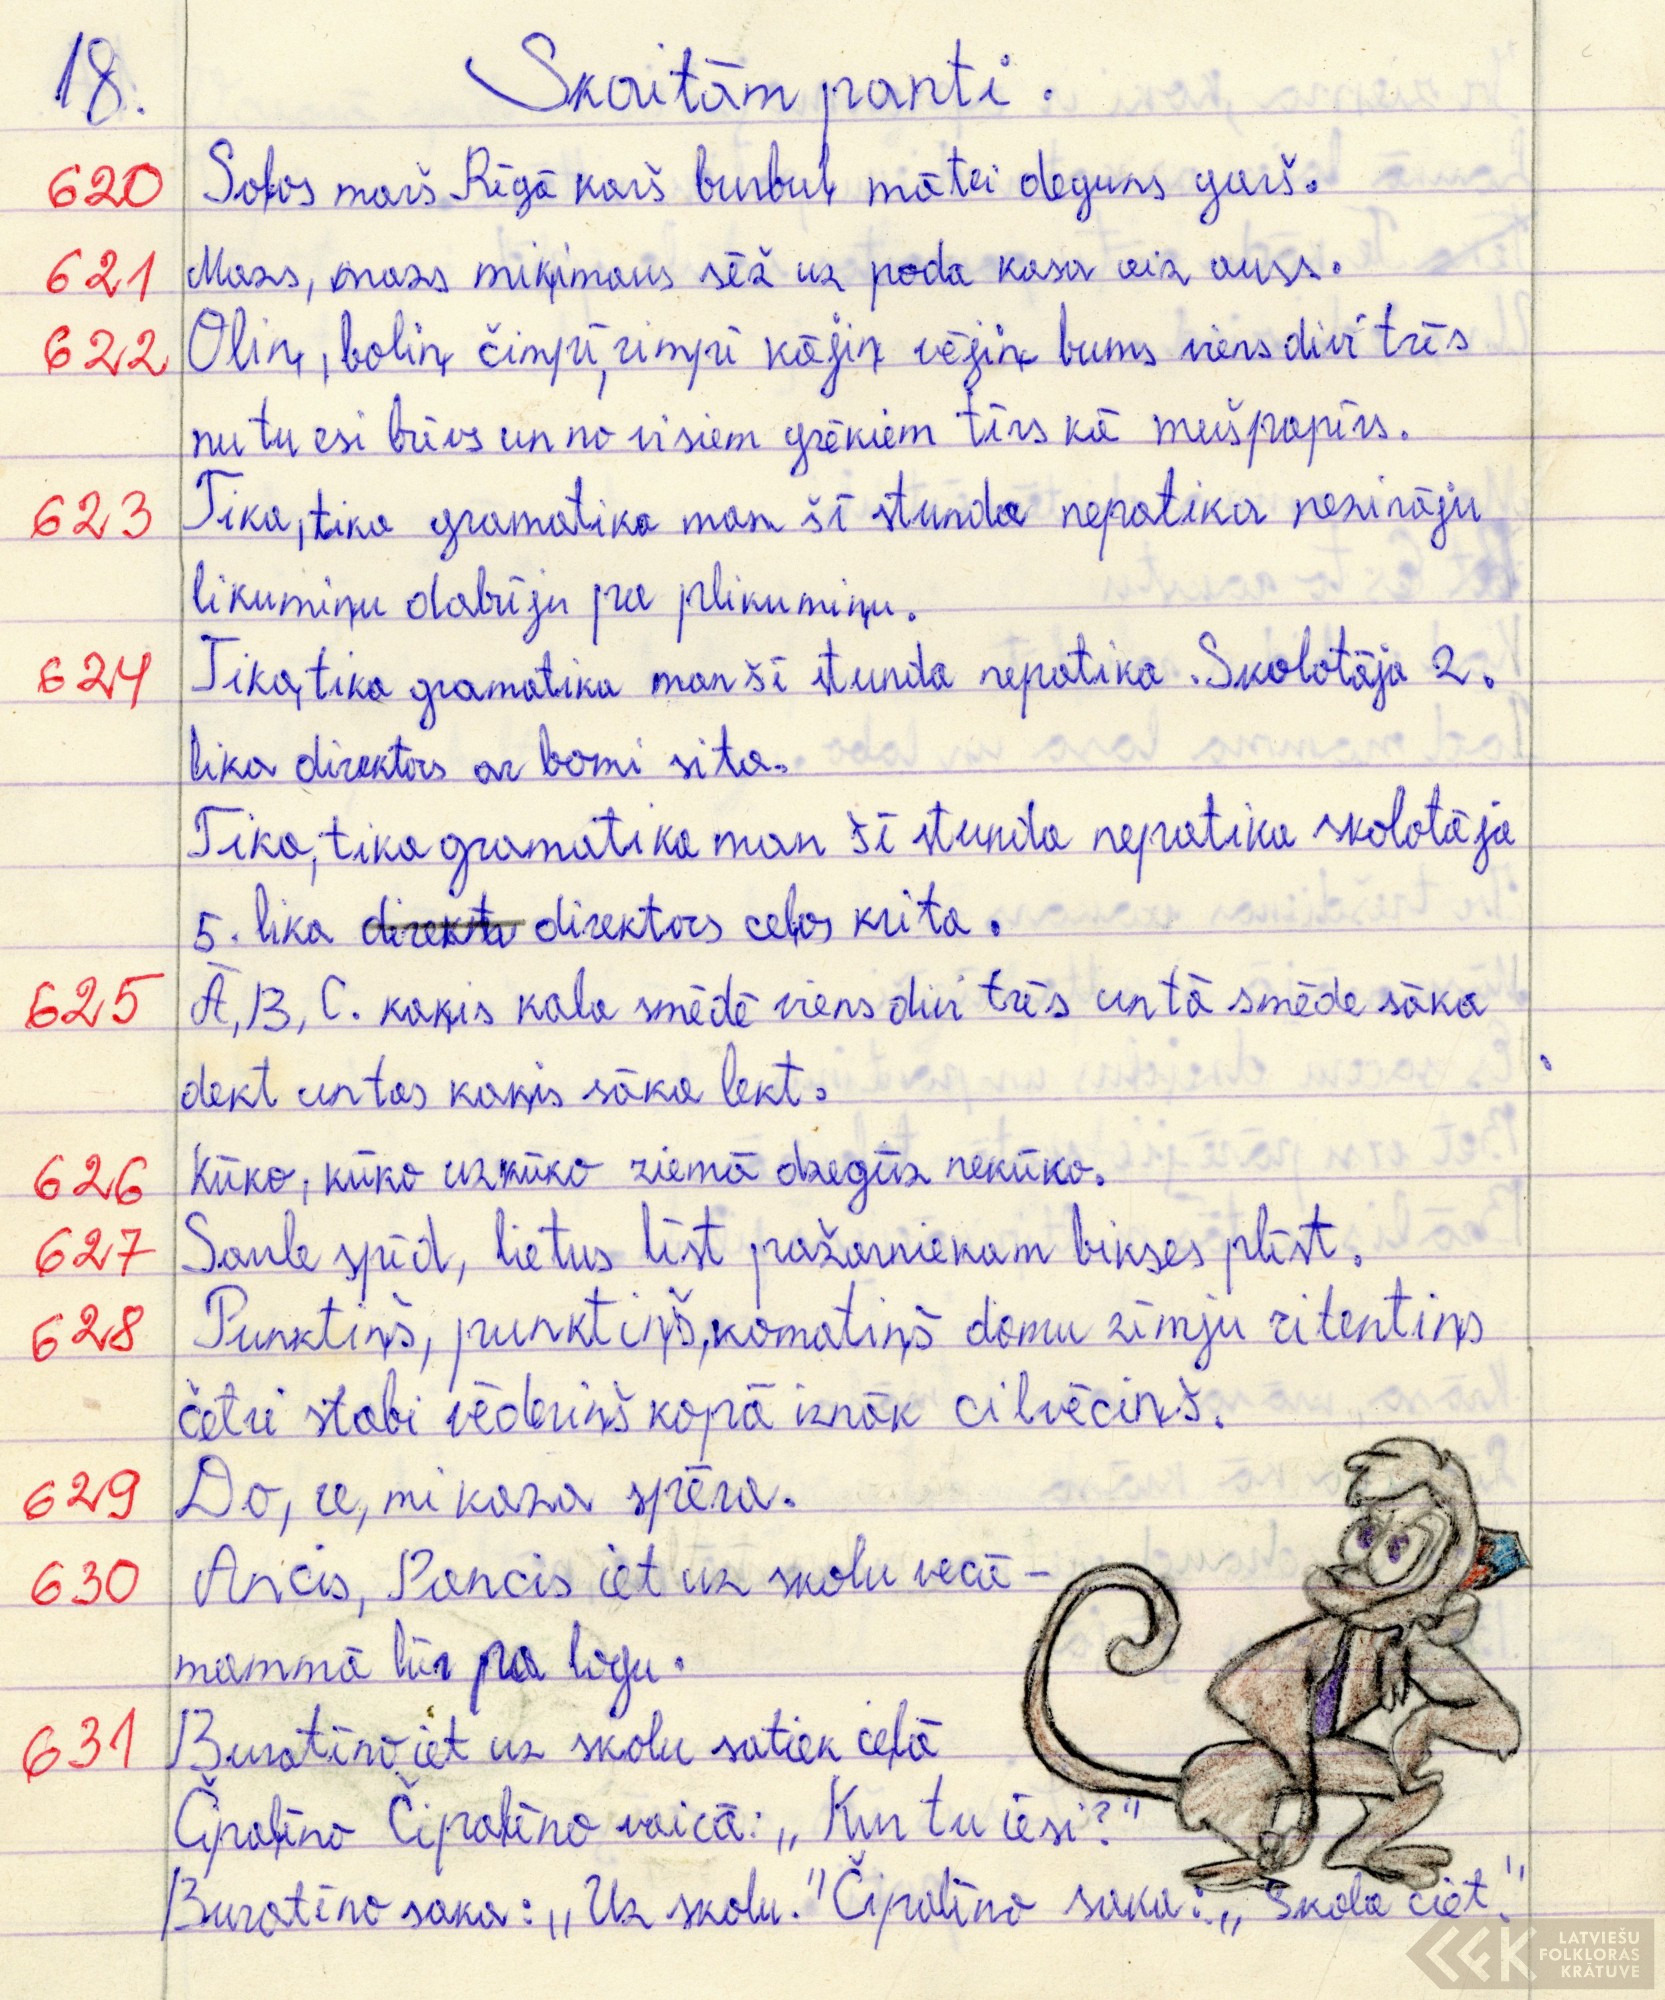 18. Skaitām panti.
620 Soļos marš Rīgā karš burbuļ mātei deguns garš.
621 Mazs, mazs miķimaus sēž uz poda kasa aiz auss.
622 Oliņ, boliņ čimpī, rimpī kājiņ vējiņ bums viens divi trīs
nu tu esi brīvs un no visiem grēkiem tīrs kā mušpapīrs.
623 Tika, tika gramatika man šī stunda nepatika nezināju
likumiņu dabūju pa plikumiņu.
624 Tika, tika gramatika man šī stunda nepatika. Skolotāja 2.
lika direktors ar bomi sita.
Tika, tika gramatika man šī stunda nepatika skolotāja
5. lika direktors ceļos krita.
625 Ā, B, C. kaķis kala smēdē viens divi trīs un tā smēde sāka
dekt un tas kaķis sāka lekt.
626 Kūko, kūko uzkūko ziemā dzegūz nekūko.
627 Saule spīd, lietus līst pažarniekam bikses plīst.
628 Punktiņš, punktiņš, komatiņš domu zīmju ritentiņs
četri stabi vēderiņš kopā iznāk cilvēciņš.
629 Do, re, mi kaza spēra.
630 Ancis, Pancis iet uz skolu vecā-
mammā lūr pa logu.
631 Buratīno iet uz skolu satiek ceļā
Čipolīno Čipolīno vaicā: „Kur tu iesi?"
Buratīno saka: „Uz skolu." Čipolīno saka: „Skola ciet."
LATVIEŠU
FOLKLORAS
KRĀTUVE